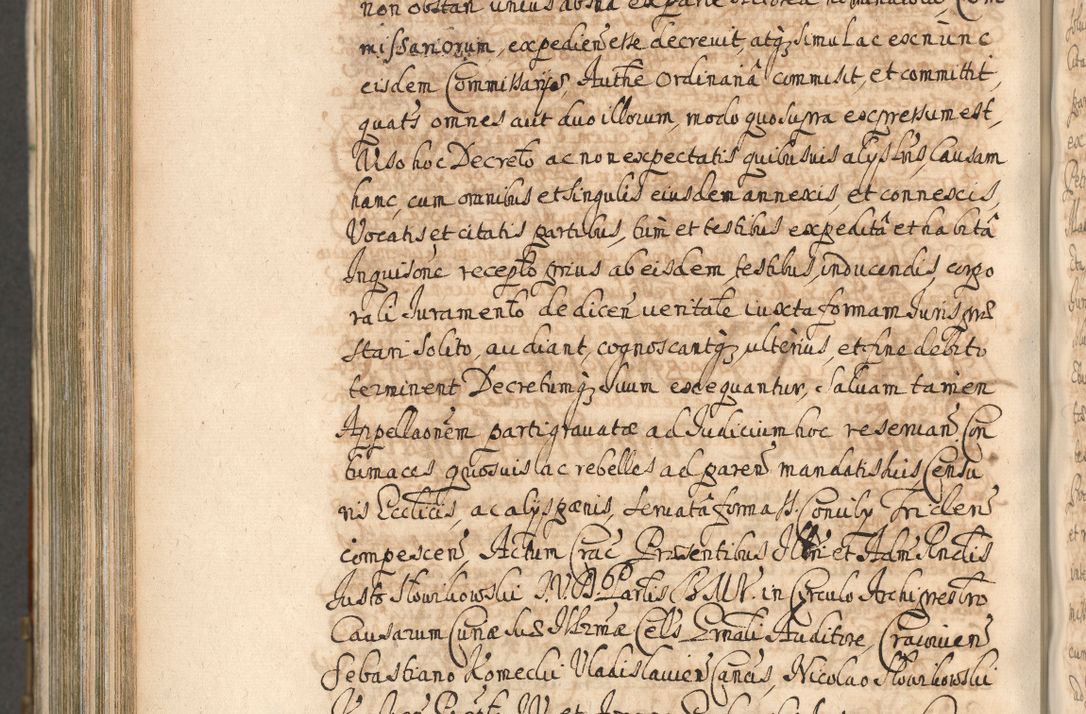 missariorum, expedien esse decrevit, atq; simul ac ex nunc
eisdem Commissarys, Authe Ordinariâ commisit, et committit,
quats omnes aut duo illorum, modo quo supra expressum est,
Viso hoc Decreto ac non expectatis quibusuis alys Lris, Causam
hanc, cum omnibus et singulis eiusdem annexis, et connexis,
Vocatis et citatis partibus, tùm et testibus expeditâ et habitâ
Inquisone recepto prius ab eisdem testibus, inducendis, corpo
rali Iuramento de dicen veritate iuxta formam Iuris præ
stari solito, audiant, cognoscantq; ulterius, et fine debito
terminent Decretumq; suum exequantur, Salvam tamen
Appellaonem parti gravatæ ad Iudicium hoc reservan Con
tumaces quosuis ac rebelles ad paren mandatis suis, Censu
ris Ecclicis, ac alys pænis, servatâ forma S. Concily Triden
compescen, Actum Crac Præsentibus Illri et Adm Rndis
Justo Słowikowski I.V.D. Eccl B.M.V. in Circulo Archipresbro
Causarum Curiæ suæ Illrmæ Cels Epali Auditore, Cracovien
Sebastiano Komecki Vladislavien Cancis, Nicolao Słowikowski